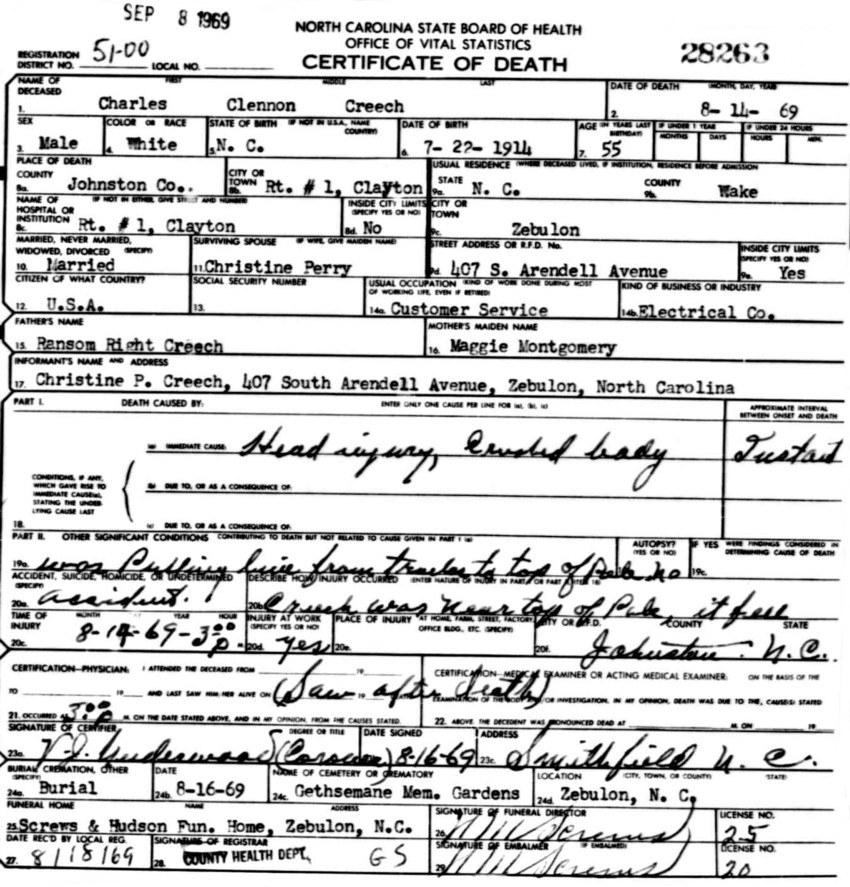 SEP 8 1969
NORTH CAROLINA STATE BOARD OF HEALTH
OFFICE OF VITAL STATISTICS
CERTIFICATE OF DEATH
28263
REGISTRATION DISTRICT NO. 51-00 LOCAL NO.
NAME OF DECEASED FIRST MIDDLE LAST DATE OF DEATH (MONTH, DAY, YEAR)
1. Charles Clennon Creech 2. 8- 14- 69
SEX COLOR OR RACE STATE OF BIRTH (IF NOT IN U.S.A., NAME COUNTRY) DATE OF BIRTH AGE (IN YEARS LAST BIRTHDAY) IF UNDER 1 YEAR MONTHS DAYS IF UNDER 24 HOURS HOURS MIN.
3. Male 4. White 5. N. C. 6. 7- 22- 1914 7. 55
PLACE OF DEATH USUAL RESIDENCE (WHERE DECEASED LIVED, IF INSTITUTION, RESIDENCE BEFORE ADMISSION
COUNTY CITY OR TOWN STATE COUNTY
8a. Johnston Co. 8b. Rt. # 1, Clayton 9a. N. C. 9b. Wake
NAME OF HOSPITAL OR INSTITUTION (IF NOT IN EITHER, GIVE STREET AND NUMBER) INSIDE CITY LIMITS (SPECIFY YES OR NO) CITY OR TOWN
8c. Rt. # 1, Clayton 8d. No 9c. Zebulon
MARRIED, NEVER MARRIED, WIDOWED, DIVORCED (SPECIFY) SURVIVING SPOUSE (IF WIFE, GIVE MAIDEN NAME) STREET ADDRESS OR R.F.D. No. INSIDE CITY LIMITS (SPECIFY YES OR NO)
10. Married 11. Christine Perry 9d. 407 S. Arendell Avenue 9e. Yes
CITIZEN OF WHAT COUNTRY? SOCIAL SECURITY NUMBER USUAL OCCUPATION (KIND OF WORK DONE DURING MOST OF WORKING LIFE, EVEN IF RETIRED) KIND OF BUSINESS OR INDUSTRY
12. U.S.A. 13. 14a. Customer Service 14b. Electrical Co.
FATHER'S NAME MOTHER'S MAIDEN NAME
15. Ransom Right Creech 16. Maggie Montgomery
INFORMANT'S NAME AND ADDRESS
17. Christine P. Creech, 407 South Arendell Avenue, Zebulon, North Carolina
PART I. DEATH CAUSED BY: ENTER ONLY ONE CAUSE PER LINE FOR (a), (b), (c) APPROXIMATE INTERVAL BETWEEN ONSET AND DEATH
(a) IMMEDIATE CAUSE: Head injury, Crushed body Instant
CONDITIONS, IF ANY, WHICH GAVE RISE TO IMMEDIATE CAUSE(a), STATING THE UNDERLYING CAUSE LAST
(b) DUE TO, OR AS A CONSEQUENCE OF:
18. (c) DUE TO, OR AS A CONSEQUENCE OF:
PART II. OTHER SIGNIFICANT CONDITIONS CONTRIBUTING TO DEATH BUT NOT RELATED TO CAUSE GIVEN IN PART I (a) AUTOPSY? (YES OR NO) IF YES WERE FINDINGS CONSIDERED IN DETERMINING CAUSE OF DEATH
19a. was Pulling line from trailer to top of Pole No 19c.
ACCIDENT, SUICIDE, HOMICIDE, OR UNDETERMINED (SPECIFY) DESCRIBE HOW INJURY OCCURRED (ENTER NATURE OF INJURY IN PART I OR PART II, ITEM 18)
20a. accident. 20b. Creech was near top of Pole, it fell
TIME OF INJURY MONTH DAY YEAR HOUR INJURY AT WORK (SPECIFY YES OR NO) PLACE OF INJURY (AT HOME, FARM, STREET, FACTORY, OFFICE BLDG., ETC. (SPECIFY) CITY OR R.F.D. COUNTY STATE
20c. 8-14-69-3:00 P. 20d. yes 20e. 20f. Johnston N.C.
CERTIFICATION-PHYSICIAN: I ATTENDED THE DECEASED FROM CERTIFICATION-MEDICAL EXAMINER OR ACTING MEDICAL EXAMINER: ON THE BASIS OF THE
19 TO 19 AND LAST SAW HIM/HER ALIVE ON (Saw 19 after death) EXAMINATION OF THE BODY AND/OR INVESTIGATION, IN MY OPINION, DEATH WAS DUE TO THE CAUSE(S) STATED
21. OCCURRED AT 3:00 P M. ON THE DATE STATED ABOVE, AND IN MY OPINION, FROM THE CAUSES STATED. 22. ABOVE. THE DECEDENT WAS PRONOUNCED DEAD AT M. ON 19
SIGNATURE OF CERTIFIER DEGREE OR TITLE DATE SIGNED ADDRESS
23a. Underwood (Coroner) 8-16-69 23c. Smithfield N. C.
BURIAL, CREMATION, OTHER (SPECIFY) DATE NAME OF CEMETERY OR CREMATORY LOCATION (CITY, TOWN, OR COUNTY) (STATE)
24a. Burial 24b. 8-16-69 24c. Gethsemane Mem. Gardens 24d. Zebulon, N. C.
FUNERAL HOME NAME ADDRESS SIGNATURE OF FUNERAL DIRECTOR LICENSE NO.
25. Screws & Hudson Fun. Home, Zebulon, N.C. 26. 25
DATE REC'D BY LOCAL REG. SIGNATURE OF REGISTRAR SIGNATURE OF EMBALMER (IF EMBALMED) LICENSE NO.
27. 8/18/69 28. COUNTY HEALTH DEPT. GS 29. 20